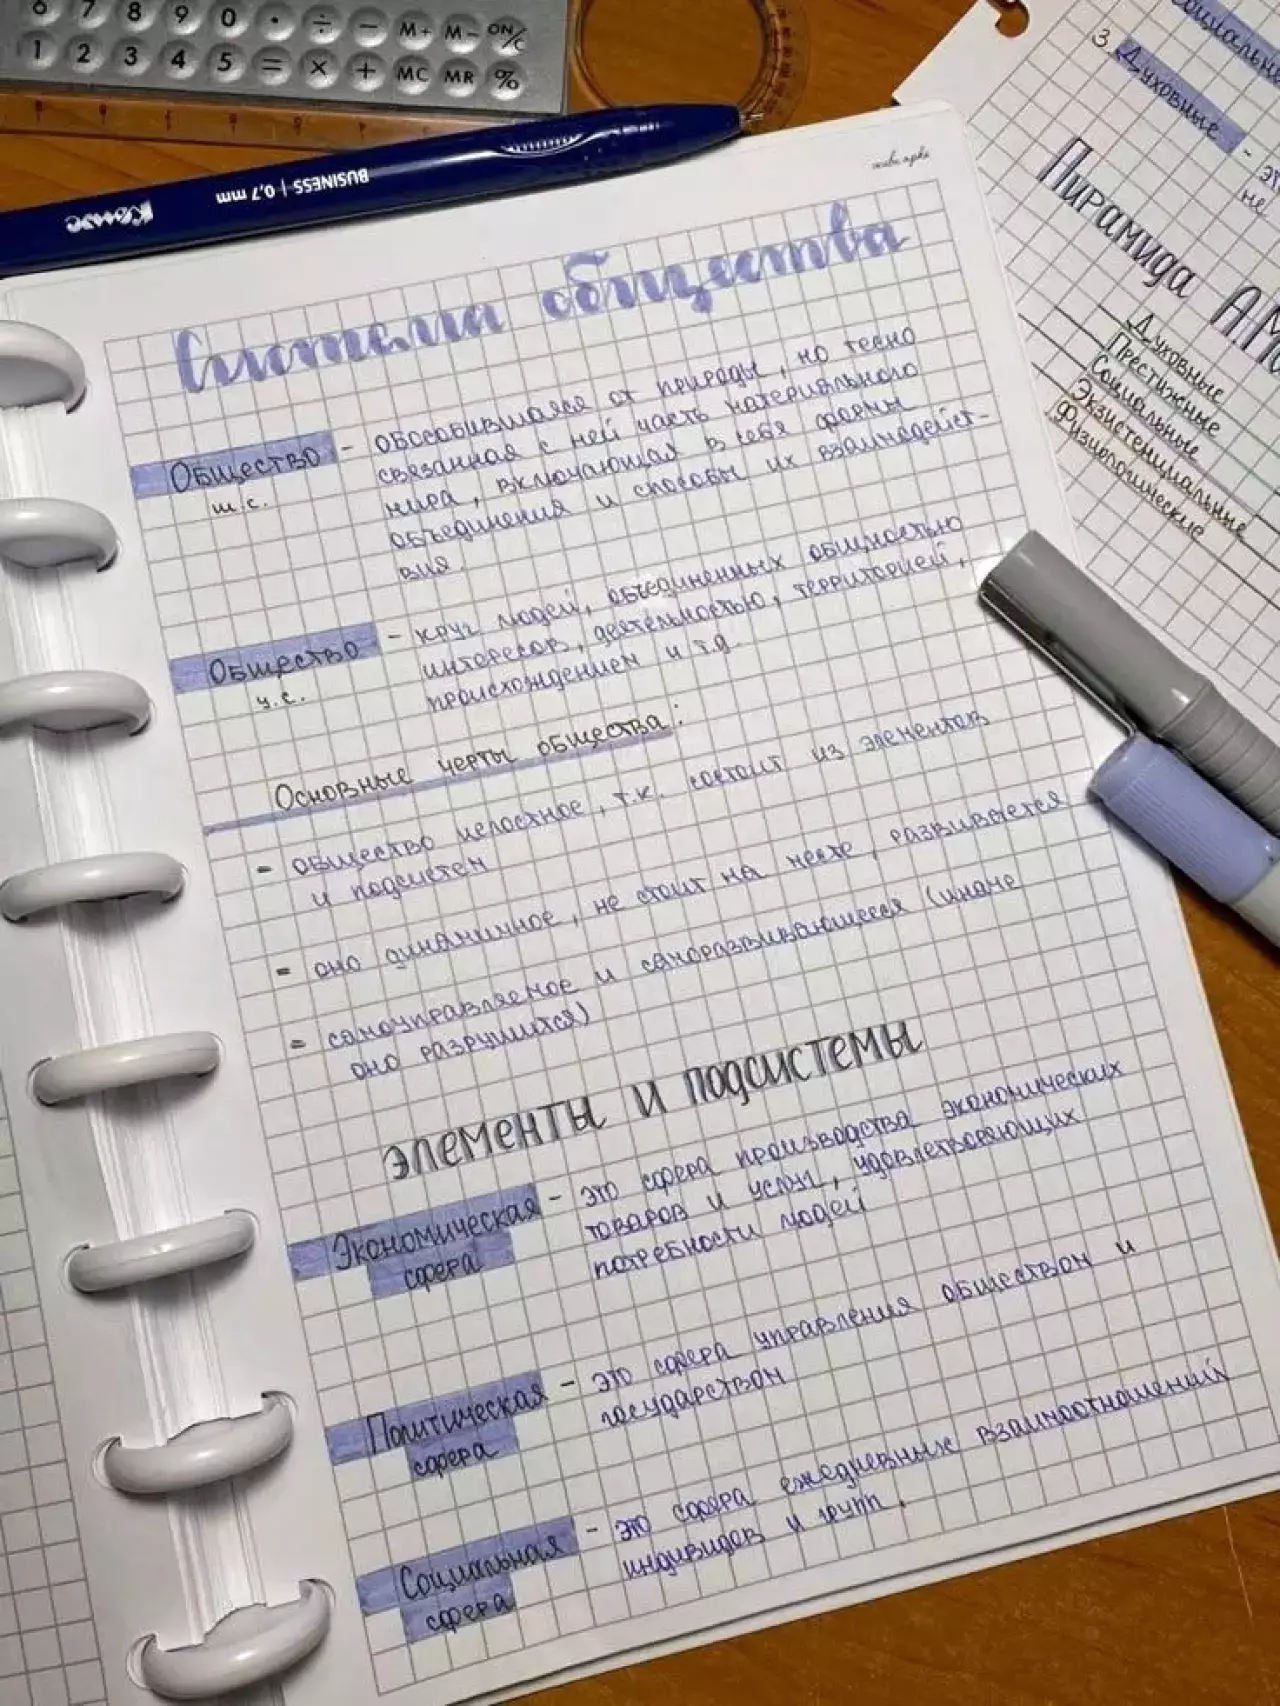 6 7 8 9 0 • ÷ − M+ M− ON/C
1 2 3 4 5 = × + MC MR %
Комус
BUSINESS | 0,7 mm
Система общества
Общество - обособившаяся от природы, но тесно
ш.с. связанная с ней часть материального
мира, включающая в себя формы
объединения и способы их взаимодейст-
вия.
Общество - круг людей, объединенных общностью
у.с. интересов, деятельностью, территорией,
происхождением и т.д.
Основные черты общества:
- общество целостное, т.к. состоит из элементов
и подсистем
= оно динамичное, не стоит на месте, развивается
= самоуправляемое и саморазвивающееся (иначе
оно разрушится)
ЭЛЕМЕНТЫ И ПОДСИСТЕМЫ
Экономическая - это сфера производства экономических
сфера товаров и услуг, удовлетворяющих
потребности людей
Политическая - это сфера управления обществом и
сфера государством
Социальная - это сфера ежедневные взаимоотношений
сфера индивидов и групп.
3. Духовные -
не
Пирамида
Духовные
Престижные
Социальные
Экзистенциальные
Физиологические